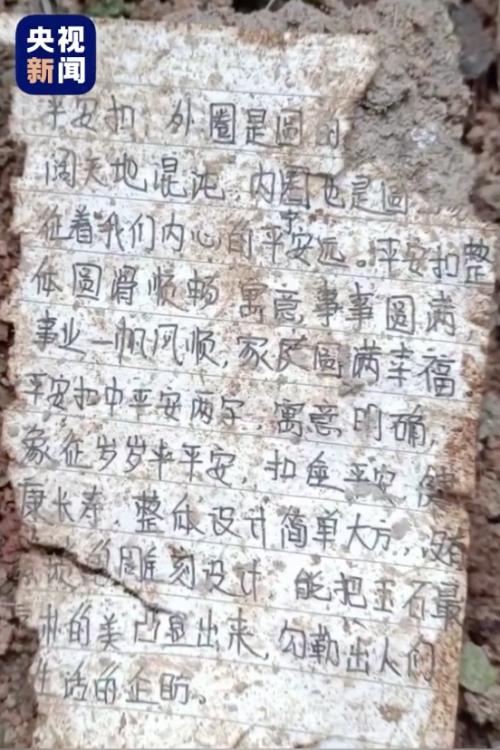 央视
新闻
平安扣 外圈是圆 的
阔天地混沌,内圈也是圆
征着我们内心的平安远。平安扣整
宁
体圆滑顺畅 寓意事事圆满,
事业一帆风顺,家民圆满幸福.
平安扣中平安两字,寓意明确,
象征岁岁平平安,扣 平安 健
康长寿,整体设计简单大方,没有
的雕刻设计 能把玉石最
的美凸显出来,勾勒出人们
生活的企盼。